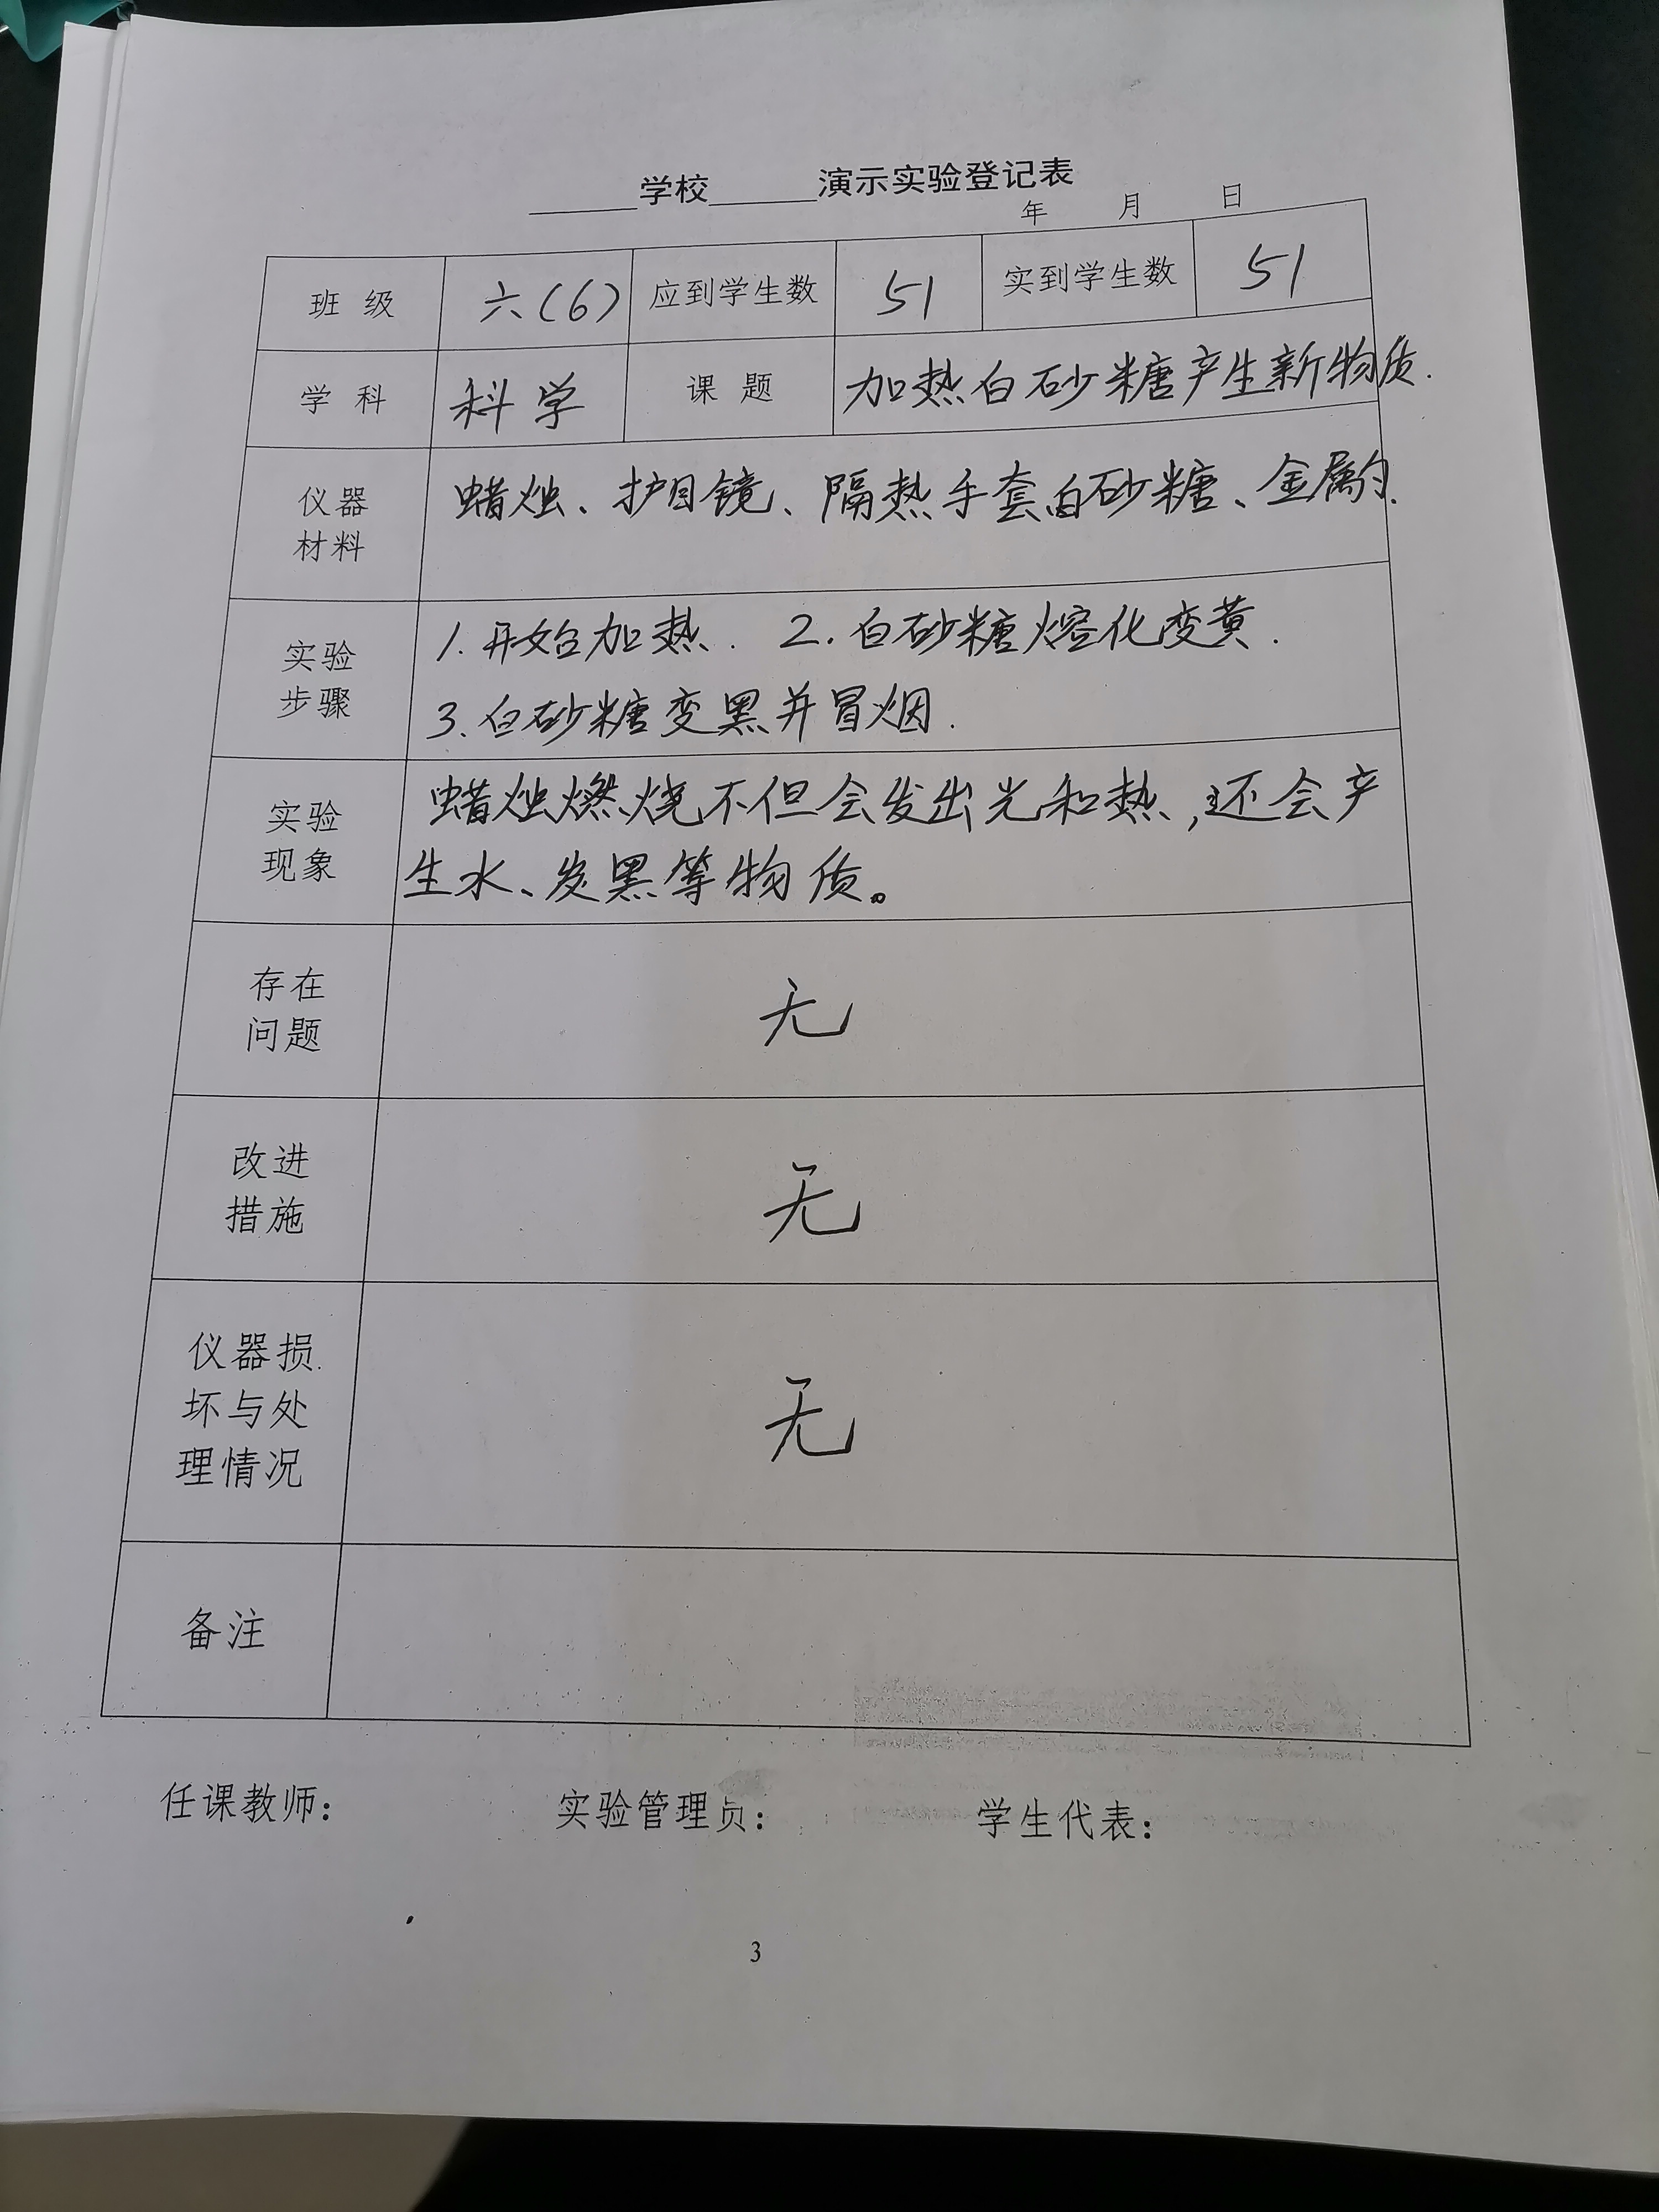 ______学校______演示实验登记表
年 月 日
班 级 六(6) 应到学生数 51 实到学生数 51
学 科 科学 课 题 加热白砂糖产生新物质.
仪器
材料
蜡烛、护目镜、隔热手套、白砂糖、金属勺.
实验
步骤
1. 开始加热. 2. 白砂糖熔化变黄.
3. 白砂糖变黑并冒烟.
实验
现象
蜡烛燃烧不但会发出光和热,还会产
生水、炭黑等物质。
存在
问题
无
改进
措施
无
仪器损
坏与处
理情况
无
备注
任课教师: 实验管理员: 学生代表:
3